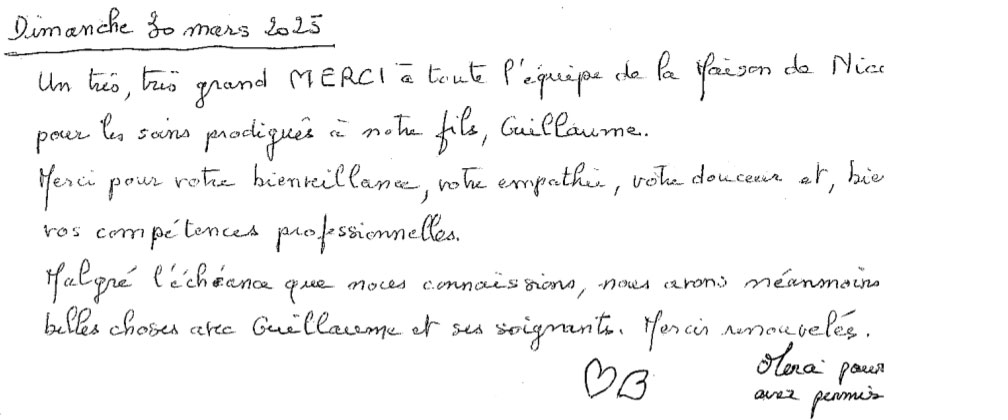 Dimanche 30 mars 2025
Un très, très grand MERCI à toute l'équipe de la Maison de Nico
pour les soins prodigués à notre fils, Guillaume.
Merci pour votre bienveillance, votre empathie, votre douceur et, bie
vos compétences professionnelles.
Malgré l'échéance que nous connaissions, nous avons néanmoins
belles choses avec Guillaume et ses soignants. Mercis renouvelés.
Merci pour
avez permis